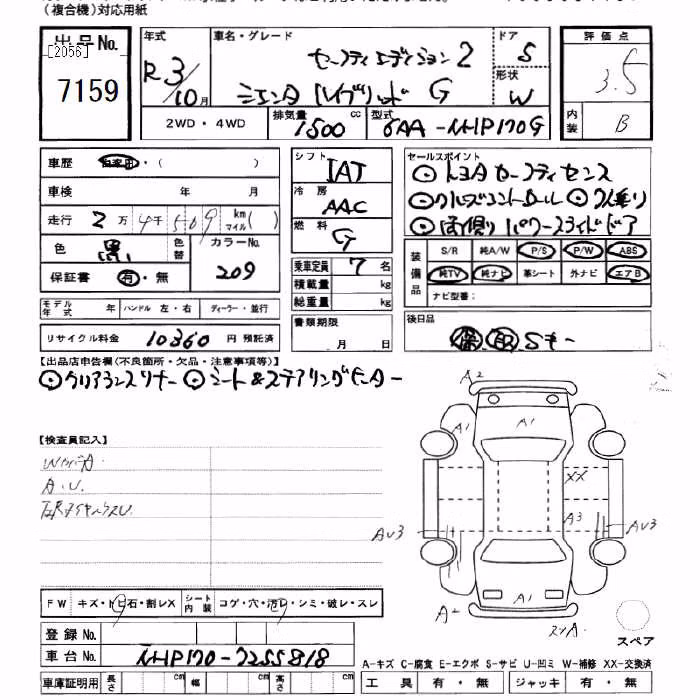 (複合機)対応用紙
出品No.
[2056]
7159
年式
R 3/10月
車名・グレード
セーフティエディション2
シエンタ ハイブリッド G
ドア
5
形状
W
評価点
3.5
内装
B
2WD・4WD
排気量 1500 cc
型式 6AA-NHP170G
車歴 自家用・( )
車検 年 月
走行 2万4千509 km マイル( )
色 黒 色替
カラーNo. 209
保証書 有・無
シフト IAT
冷房 AAC
燃料 G
乗車定員 7名
積載量 kg
総重量 kg
書類期限
月 日
セールスポイント
トヨタセーフティセンス
クルーズコントロール 7人乗り
両側パワースライドドア
装備品
S/R 純A/W P/S P/W ABS
純TV 純ナビ 革シート 外ナビ エアB
ナビ型番:
モデル年式 年 ハンドル 左・右 ディーラー・並行
リサイクル料金 10360 円 預託済
後日品
保 取 Sキー
【出品店申告欄(不良箇所・欠品・注意事項等)】
クリアランスソナー シート&ステアリングヒーター
【検査員記入】
A.U.
A2
A1
A1
XX
A3
AU3
AU3
A1
A2
スペア
FW キズ・トビ石・割レX シート内装 コゲ・穴・汚レ・シミ・破レ・スレ
登録No.
車台No. NHP170-7255818
A-キズ C-腐食 E-エクボ S-サビ U-凹ミ W-補修 XX-交換済
車庫証明用 長さ cm 幅 cm 高さ cm
工具 有・無 ジャッキ 有・無